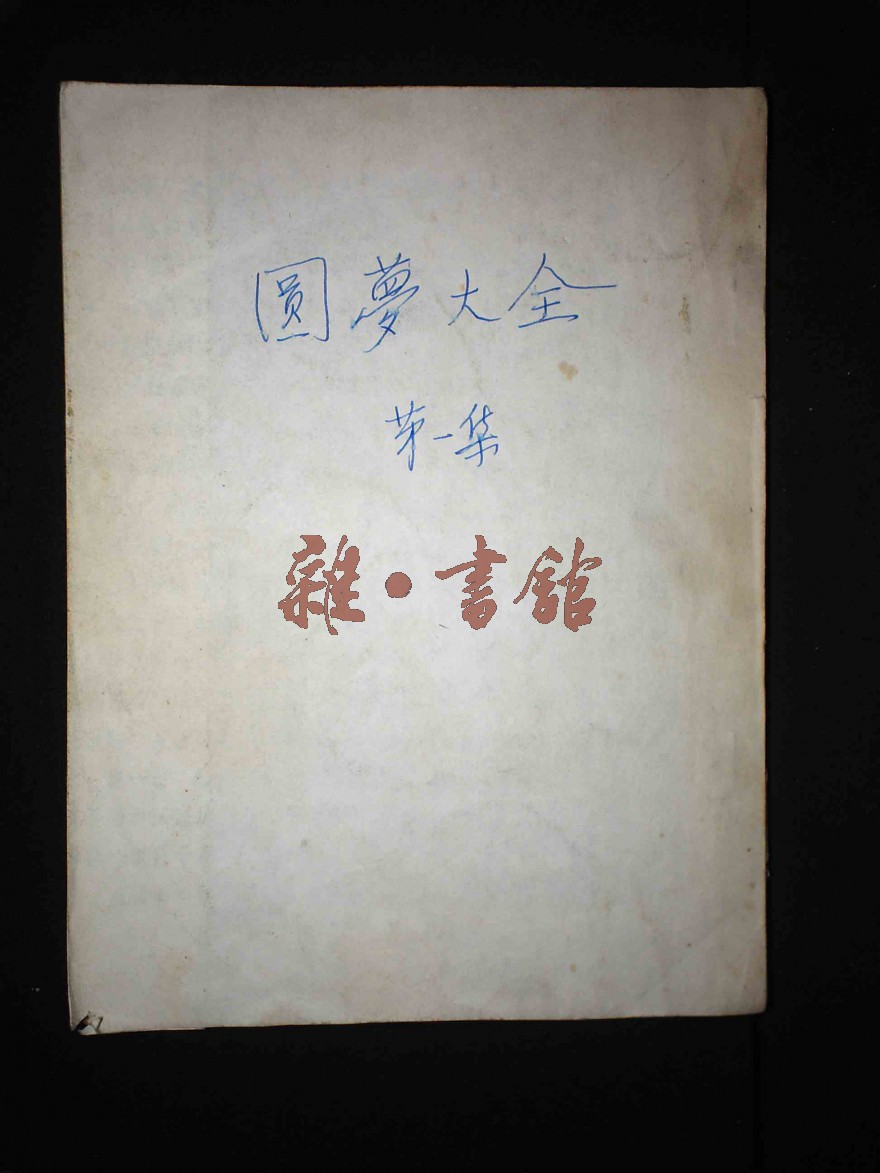 圓夢大全
第一集
雜·書館